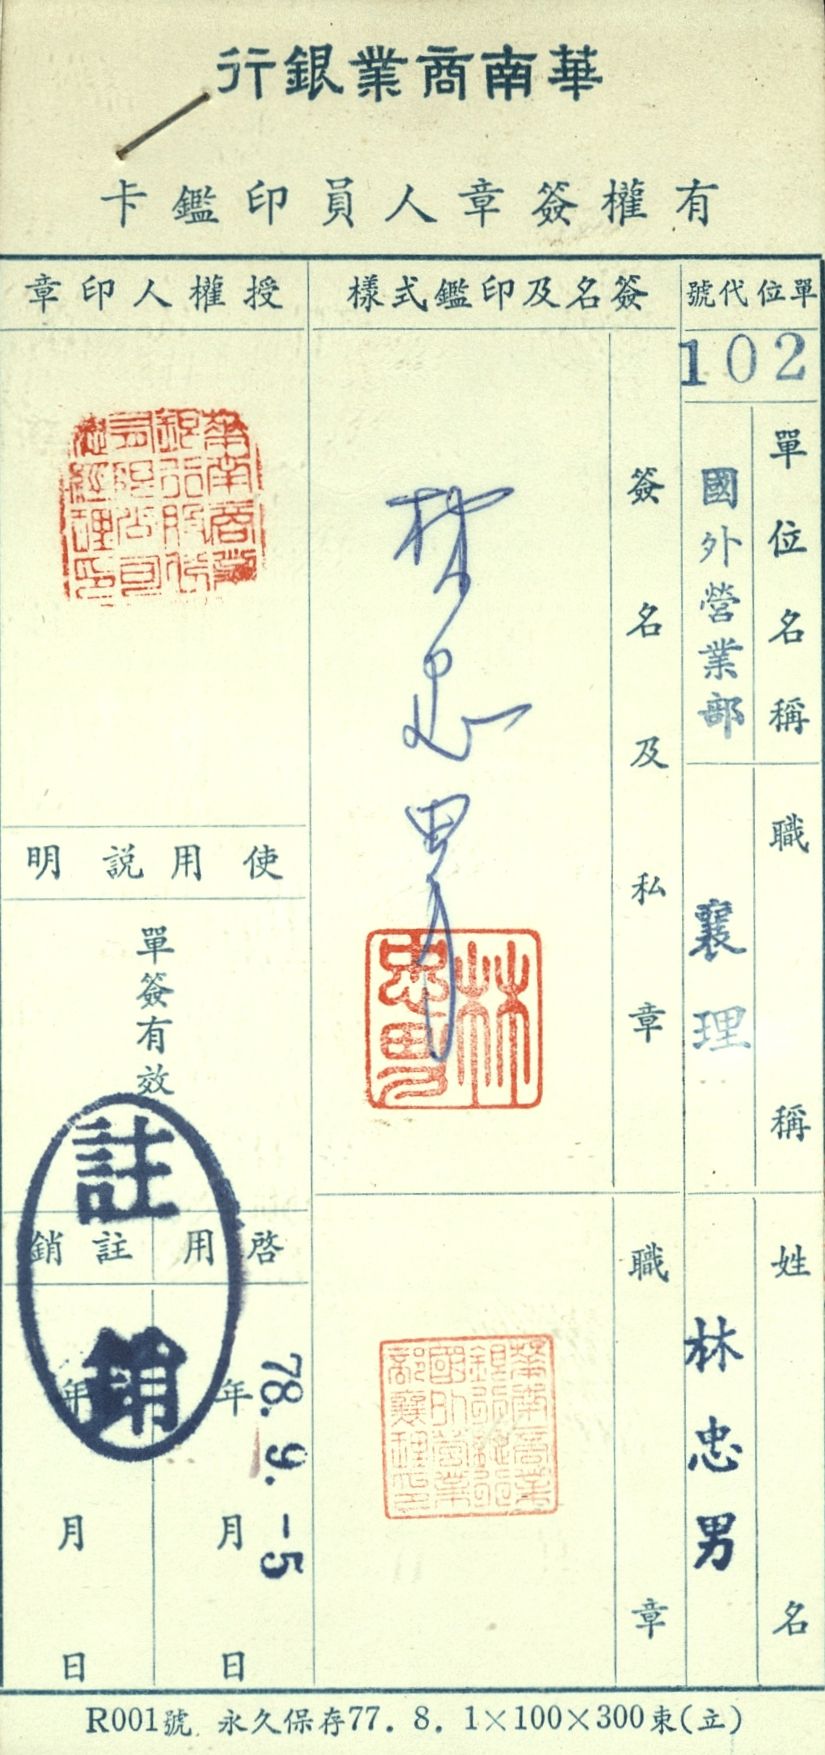 華南商業銀行
有權簽章人員印鑑卡
單位代號
102
單位名稱
國外營業部
職稱
襄理
姓名
林忠男
簽名及印鑑式樣
簽名及私章
林忠男
林忠男
職章
華南商業
銀行總行
國外營業
部襄理印
授權人印章
華南商業
銀行股份
有限公司
總經理印
使用說明
單簽有效
啓用
78.9.-5
年月日
註銷
年月日
註銷
R001號 永久保存77.8.1×100×300束(立)